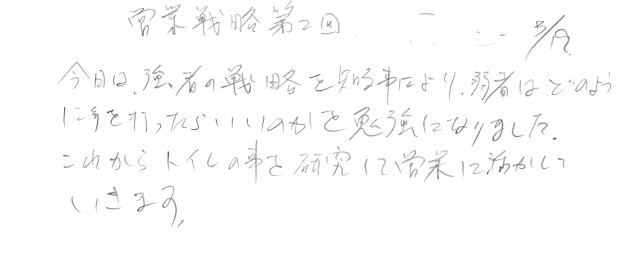 営業戦略第2回 5/19
今日は、強者の戦略を知る事により、弱者はどのよう
に手を打ったらいいのかを勉強になりました。
これからトイレの事を研究して営業に活かして
いきます。